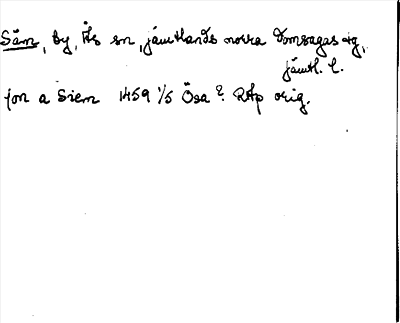 Säm, by, Ås sn, Jämtlands norra domsagas tg,
Jämtl. l.
fon a Siem 1459 1/5 Ösa? RAp orig.